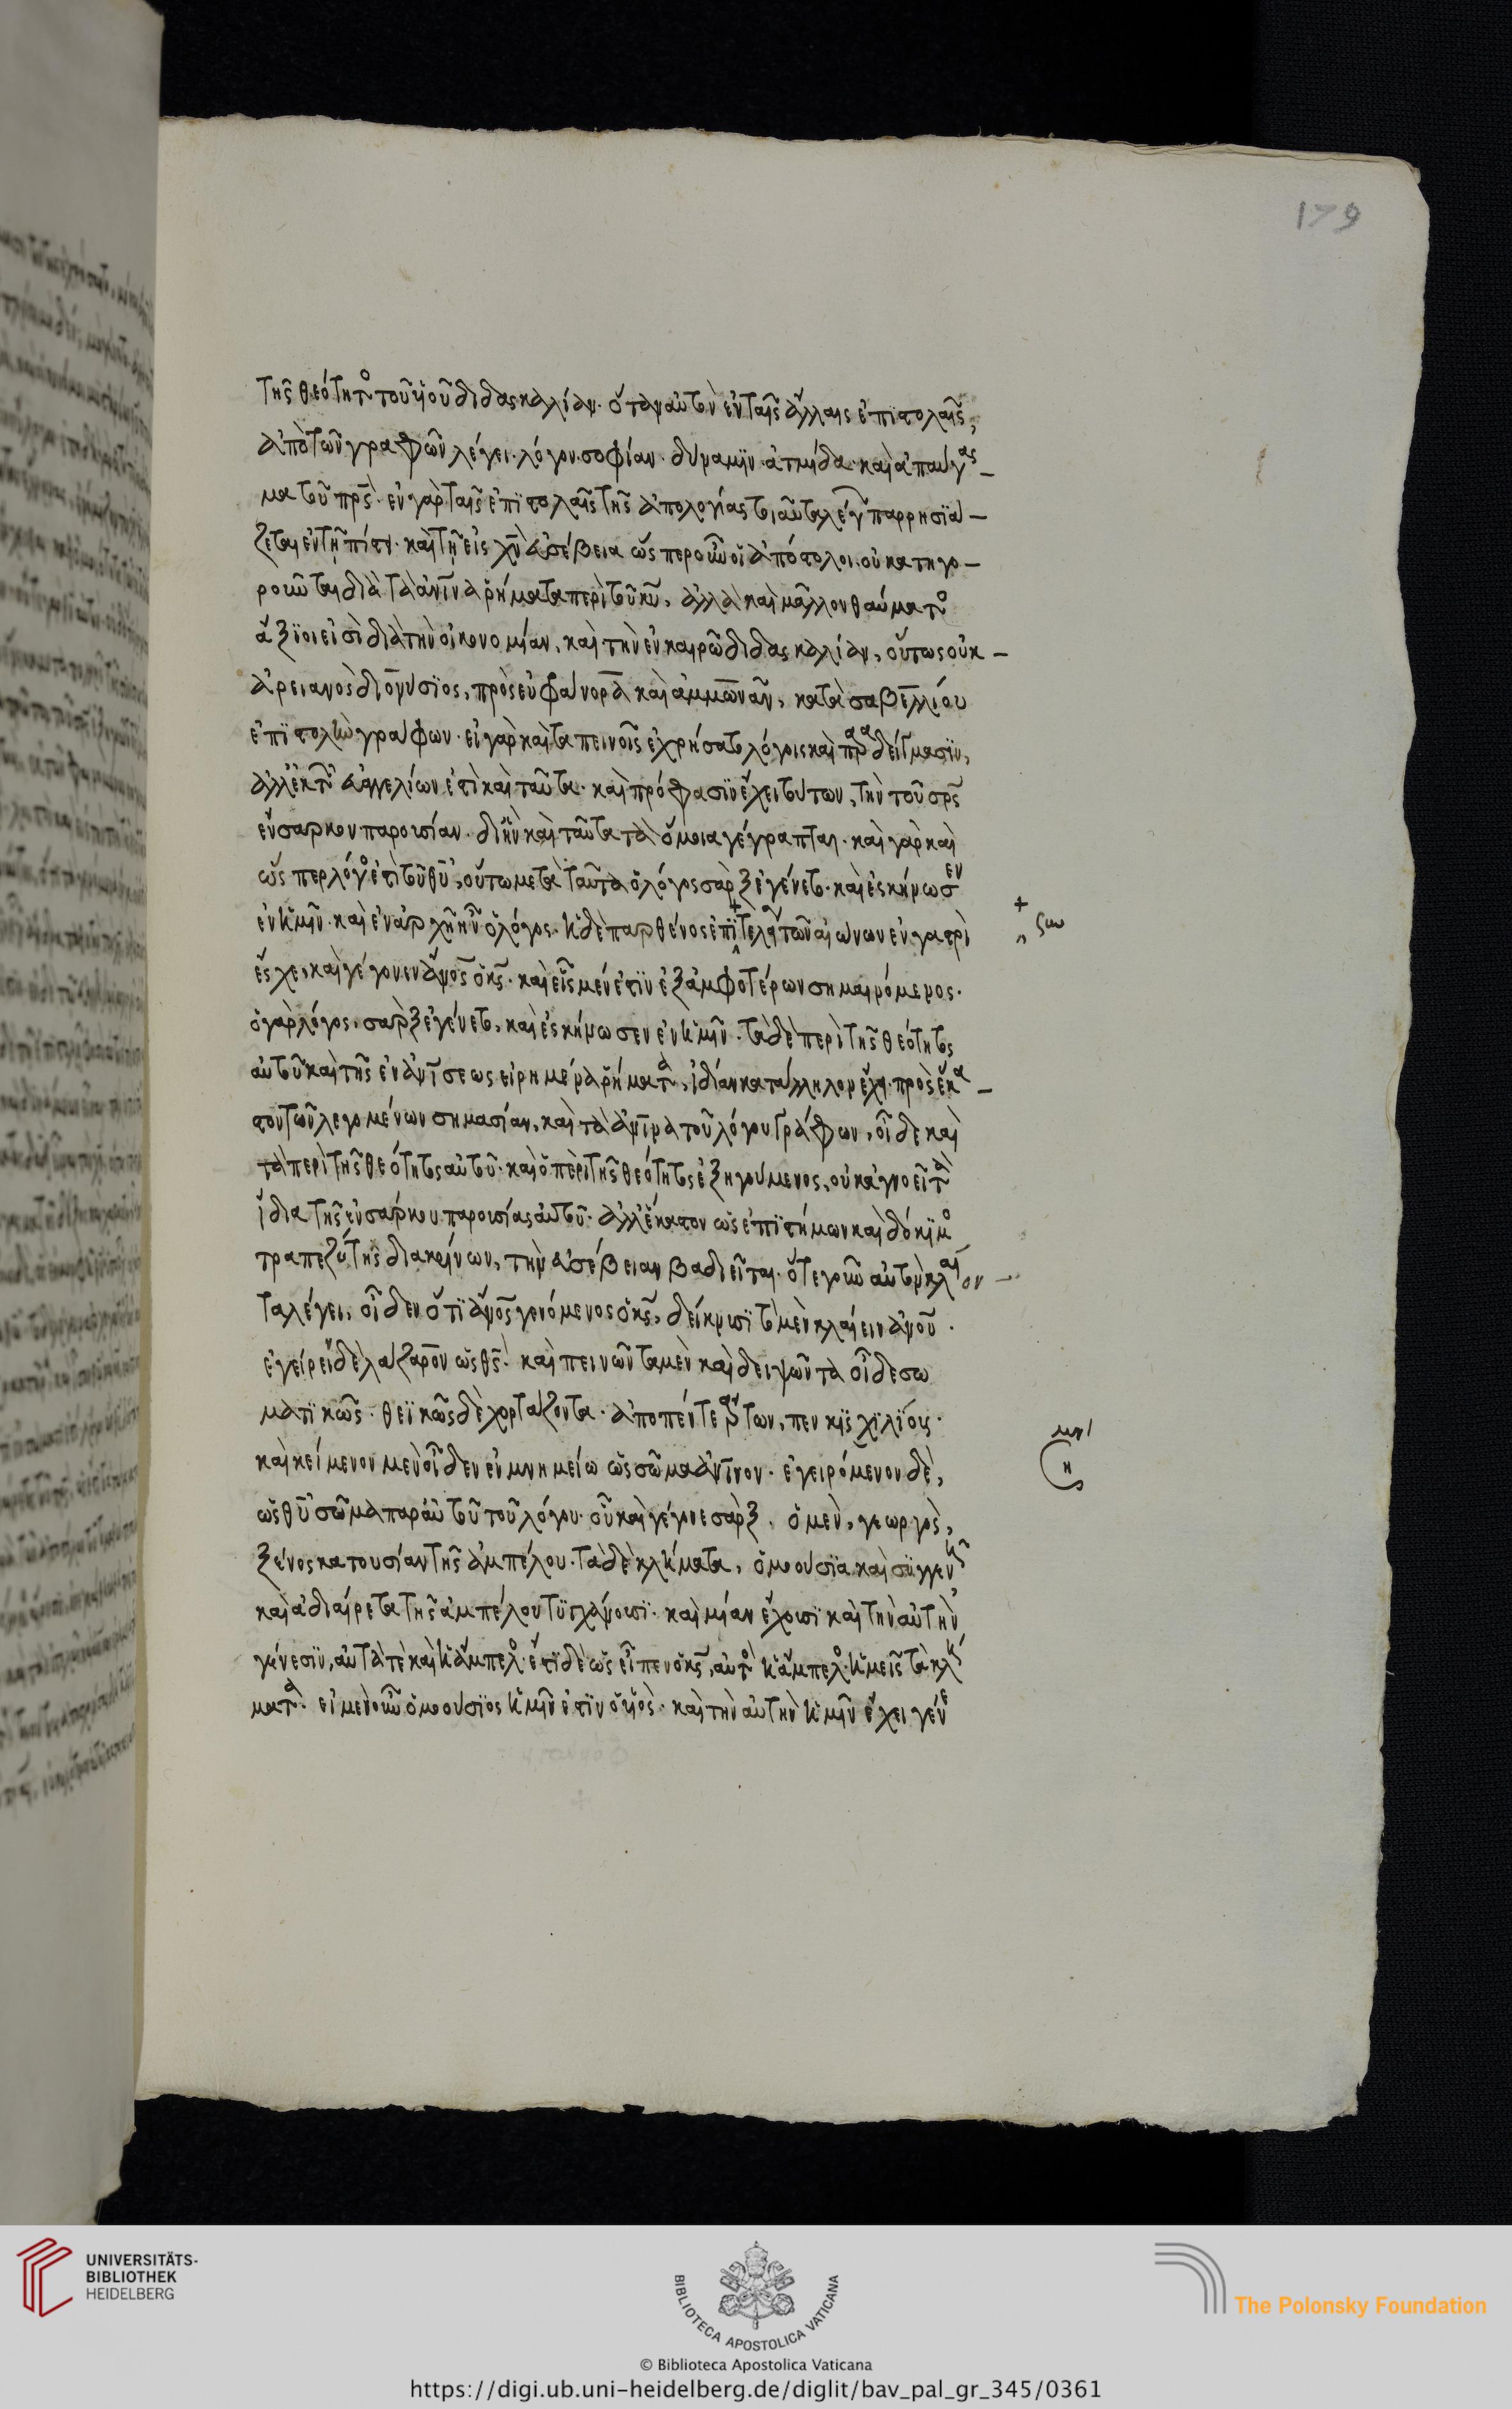 179
τῆς θεότητο τοῦ υἱοῦ διδασκαλίαν. ὅταν αὐτὸν ἐν ταῖς ἄλλαις ἐπιστολαῖς,
ἀπὸ τῶν γραφῶν λέγει. λόγον. σοφίαν. δύναμιν. ἀτμίδα. καὶ ἀπαύγας–
μα τοῦ πρς. ἐν γὰρ ταῖς ἐπιστολαῖς τῆς ἀπολογίας τοιαῦτα λέγων παρρησιά–
ζεται ἐν τῇ πίστει. καὶ τῇ εἰς χν εὐσέβεια ὥσπερ οὖν οἱ ἀπόστολοι. οὐ κατηγο–
ροῦνται διὰ τὰ ἀνινα ῥήματα περὶ τοῦ κυ, ἀλλὰ καὶ μᾶλλον θαύματο
ἄξιοι εἰσὶ διὰ τὴν οἰκονομίαν, καὶ τὴν ἐν καιρῶ διδασκαλίαν, οὕτως οὐκ–
ἀρειανὸς διονύσιος, πρὸς εὐφράνορα καὶ ἀμμώναν, κατὰ σαβελλίου
ἐπιστολὴν γράφων. εἰ γὰρ καὶ ταπεινοῖς ἐχρήσατο λόγοις καὶ παραδείγμασιν,
ἀλλ' ἐκ τῶν εὐαγγελίων ἐστὶ καὶ ταῦτα. καὶ πρόφασιν ἔχει τούτων, τὴν τοῦ σρς
ἔνσαρκον παρουσίαν. δι' ἣν καὶ ταῦτα τὰ ὅμοια γέγραπται. καὶ γὰρ καὶ
ὥσπερ λόγο ἐστὶ τοῦ θυ, οὕτω μετὰ ταῦτα ὁ λόγος σὰρξ ἐγένετο. καὶ ἐσκήνωσεν
ἐν ἡμῖν. καὶ ἐν ἀρχῇ ἦν ὁ λόγος. ἡ δὲ παρθένος ἐπὶ τέλει τῶν αἰώνων ἐν γαστρὶ
ἔσχε, καὶ γέγονεν ἀνος ὁ κς. καὶ εἷς μέν ἐστιν ἐξ ἀμφοτέρων σημαινόμενος.
ὁ γὰρ λόγος, σὰρξ ἐγένετο, καὶ ἐσκήνωσεν ἐν ἡμῖν. τὰ δὲ περὶ τῆς θεότητος
αὐτοῦ καὶ τῆς ἐνανισεως εἰρημένα ῥήματα, ἰδίαν κατάλληλον ἔχει πρὸς ἕκα–
στον τῶν λεγομένων σημασίαν, καὶ τὰ ἀνινα τοῦ λόγου γράφων, οἶδε καὶ
τὰ περὶ τῆς θεότητος αὐτοῦ. καὶ ὁ περὶ τῆς θεότητος ἐξηγούμενος, οὐκ ἀγνοεῖ τὰ
ἴδια τῆς ἐνσάρκου παρουσίας αὐτοῦ. ἀλλ' ἕκαστον ὡς ἐπιστήμων καὶ δόκιμο
τραπεζίτης διακρίνων, τὴν εὐσέβειαν βαδιεῖται. ὅτε γοῦν αὐτὸν κλαίον–
τα λέγει, οἶδεν ὅτι ἀνος γενόμενος ὁ κς, δείκνυσι τὸ μὲν κλαίειν ἀνου.
ἐγείρει δὲ λάζαρον ὡς θς. καὶ πεινῶντα μὲν καὶ δειψῶντα οἶδε σω
ματικῶς. θεϊκῶς δὲ χορτάζοντα. ἀπο πέντε ἄρτων, πενκισχιλίους.
καὶ κείμενον μὲν οἶδεν ἐν μνημείω ὡς σῶμα ἀνινον. ἐγειρόμενον δὲ,
ὡς θυ σῶμα παρ' αὐτοῦ τοῦ λόγου. οὗ καὶ γέγονε σὰρξ. ὁ μὲν, γεωργὸς,
ξένος κατ' οὐσίαν τῆς ἀμπέλου. τὰ δὲ κλήματα, ὁμοούσια καὶ συγγενῆ
καὶ ἀδιαίρετα τῆς ἀμπέλου τυγχάνουσι. καὶ μίαν ἔχουσι καὶ τὴν αὐτὴν
γένεσιν, αὐτά τε καὶ ἡ ἄμπελο. ἔστι δὲ ὡς εἶπεν ὁ κς, αὐτο ἡ ἄμπελο. ἡμεῖς τὰ κλή
ματα. εἰ μὲν οὖν ὁμοούσιος ἡμῖν ἐστιν ὁ υἱὸς. καὶ τὴν αὐτὴν ἡμῖν ἔχει γένε
UNIVERSITÄTS-
BIBLIOTHEK
HEIDELBERG
BIBLIOTECA APOSTOLICA VATICANA
The Polonsky Foundation
© Biblioteca Apostolica Vaticana
https://digi.ub.uni-heidelberg.de/diglit/bav_pal_gr_345/0361